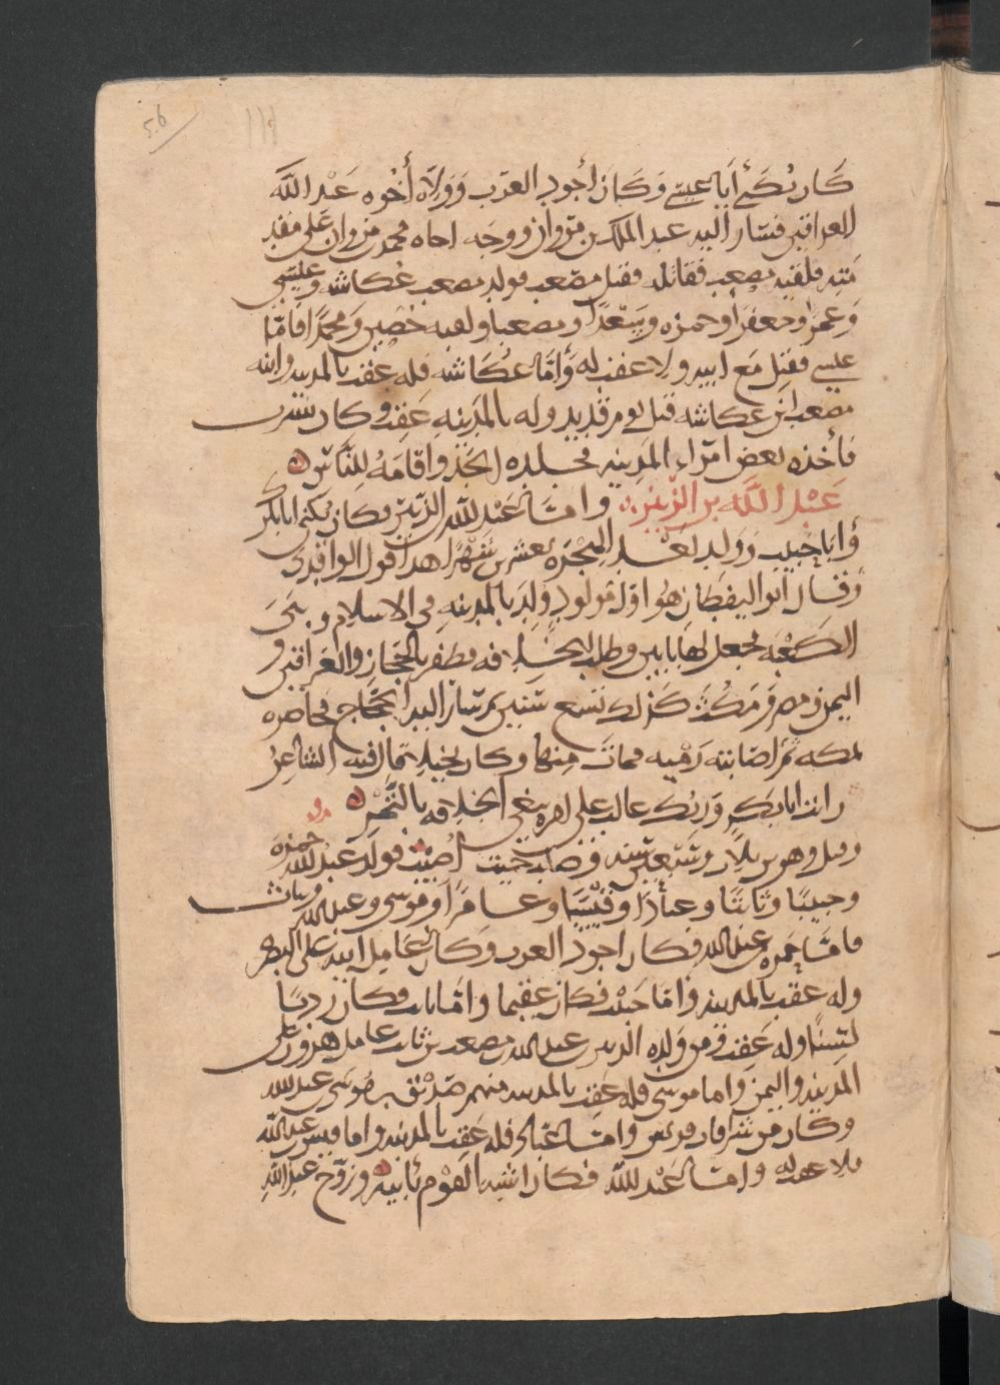 56
١١١
كان يكنى أبا عيسى وكان أجود العرب وولاه أخوه عبد الله
العراقين فسار اليه عبد الملك بن مروان ووجه اخاه محمد بن مروان على مقد
مته فلقيه مصعب فقاتله فقتل مصعب فولد مصعب عكاشه وعيسى
وعمرا وجعفرا وحمزه وسعدا ومصعبا ولقبه خضير ومحمدا فامّا
عيسى فقتل مع ابيه ولا عقب له وأمّا عكاشه فله عقب بالمدينه وابنه
مصعب ابن عكاشه قتل يوم قديد وله بالمدينه عقب وكان يشرب
فأخذه بعض امراء المدينه فجلده الحد واقامه للناس
عبد الله بن الزبير وامّا عبد الله بن الزبير فكان يكنى ابا بكر
وأبا خبيب وولد بعد الهجره بعشرين شهرا هذا قول الواقدى
وقال ابو اليقظان هو اوّل مولود ولد بالمدينه فى الاسلام وبنى
الكعبه فجعل لها بابين وطلب الخلافه فظفر بالحجاز والعراقين و
اليمن ومصر ومكث كذلك تسع سنين ثم سار اليه الحجّاج فحاصره
بمكه ثمّ اصابته رميه فمات منها وكان بخيلا فقال فيه الشاعر
رايت ابا بكر وربّك غالب على امره يبغى الخلافه بالتّمر
وقتل وهو بن ثلاث وسبعين سنه وصلب حيث اصيب فولد عبد الله حمزه
وخبيبا وثابتا وعبادا وقيسا وعامرا وموسى وعبد الله وبنات
فامّا حمزه بن عبد الله فكان اجود العرب وكان عامل ابيه على البصره
وله عقب بالمدينه وامّا خبيب فكان عقيما وامّا ثابت فكان بذيّا
لسنا وله عقب فمن ولده الزبير بن عبد الله بن مصعب بن ثابت عامل هرون على
المدينه واليمن واما موسى فله عقب بالمدينه منهم صديق بن موسى بن عبد الله
وكان من سراه قريش وامّا عبّاد فله عقب بالمدينه واما قيس بن عبد الله
فلا عقب له وامّا عبد الله فكان اشبه القوم بأبيه وزوّج عبد الله